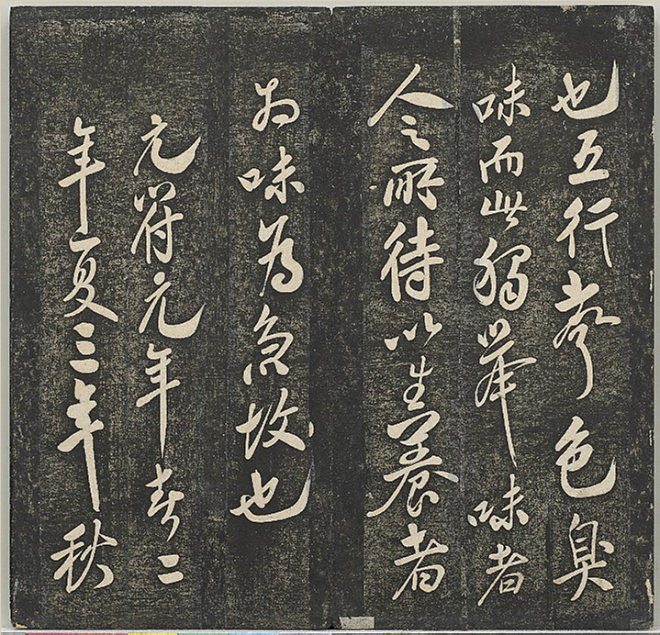 也五行聲色臭
味而此獨舉味者
人之所待以生養者
於味為急故也
元符元年春二
年夏三年秋